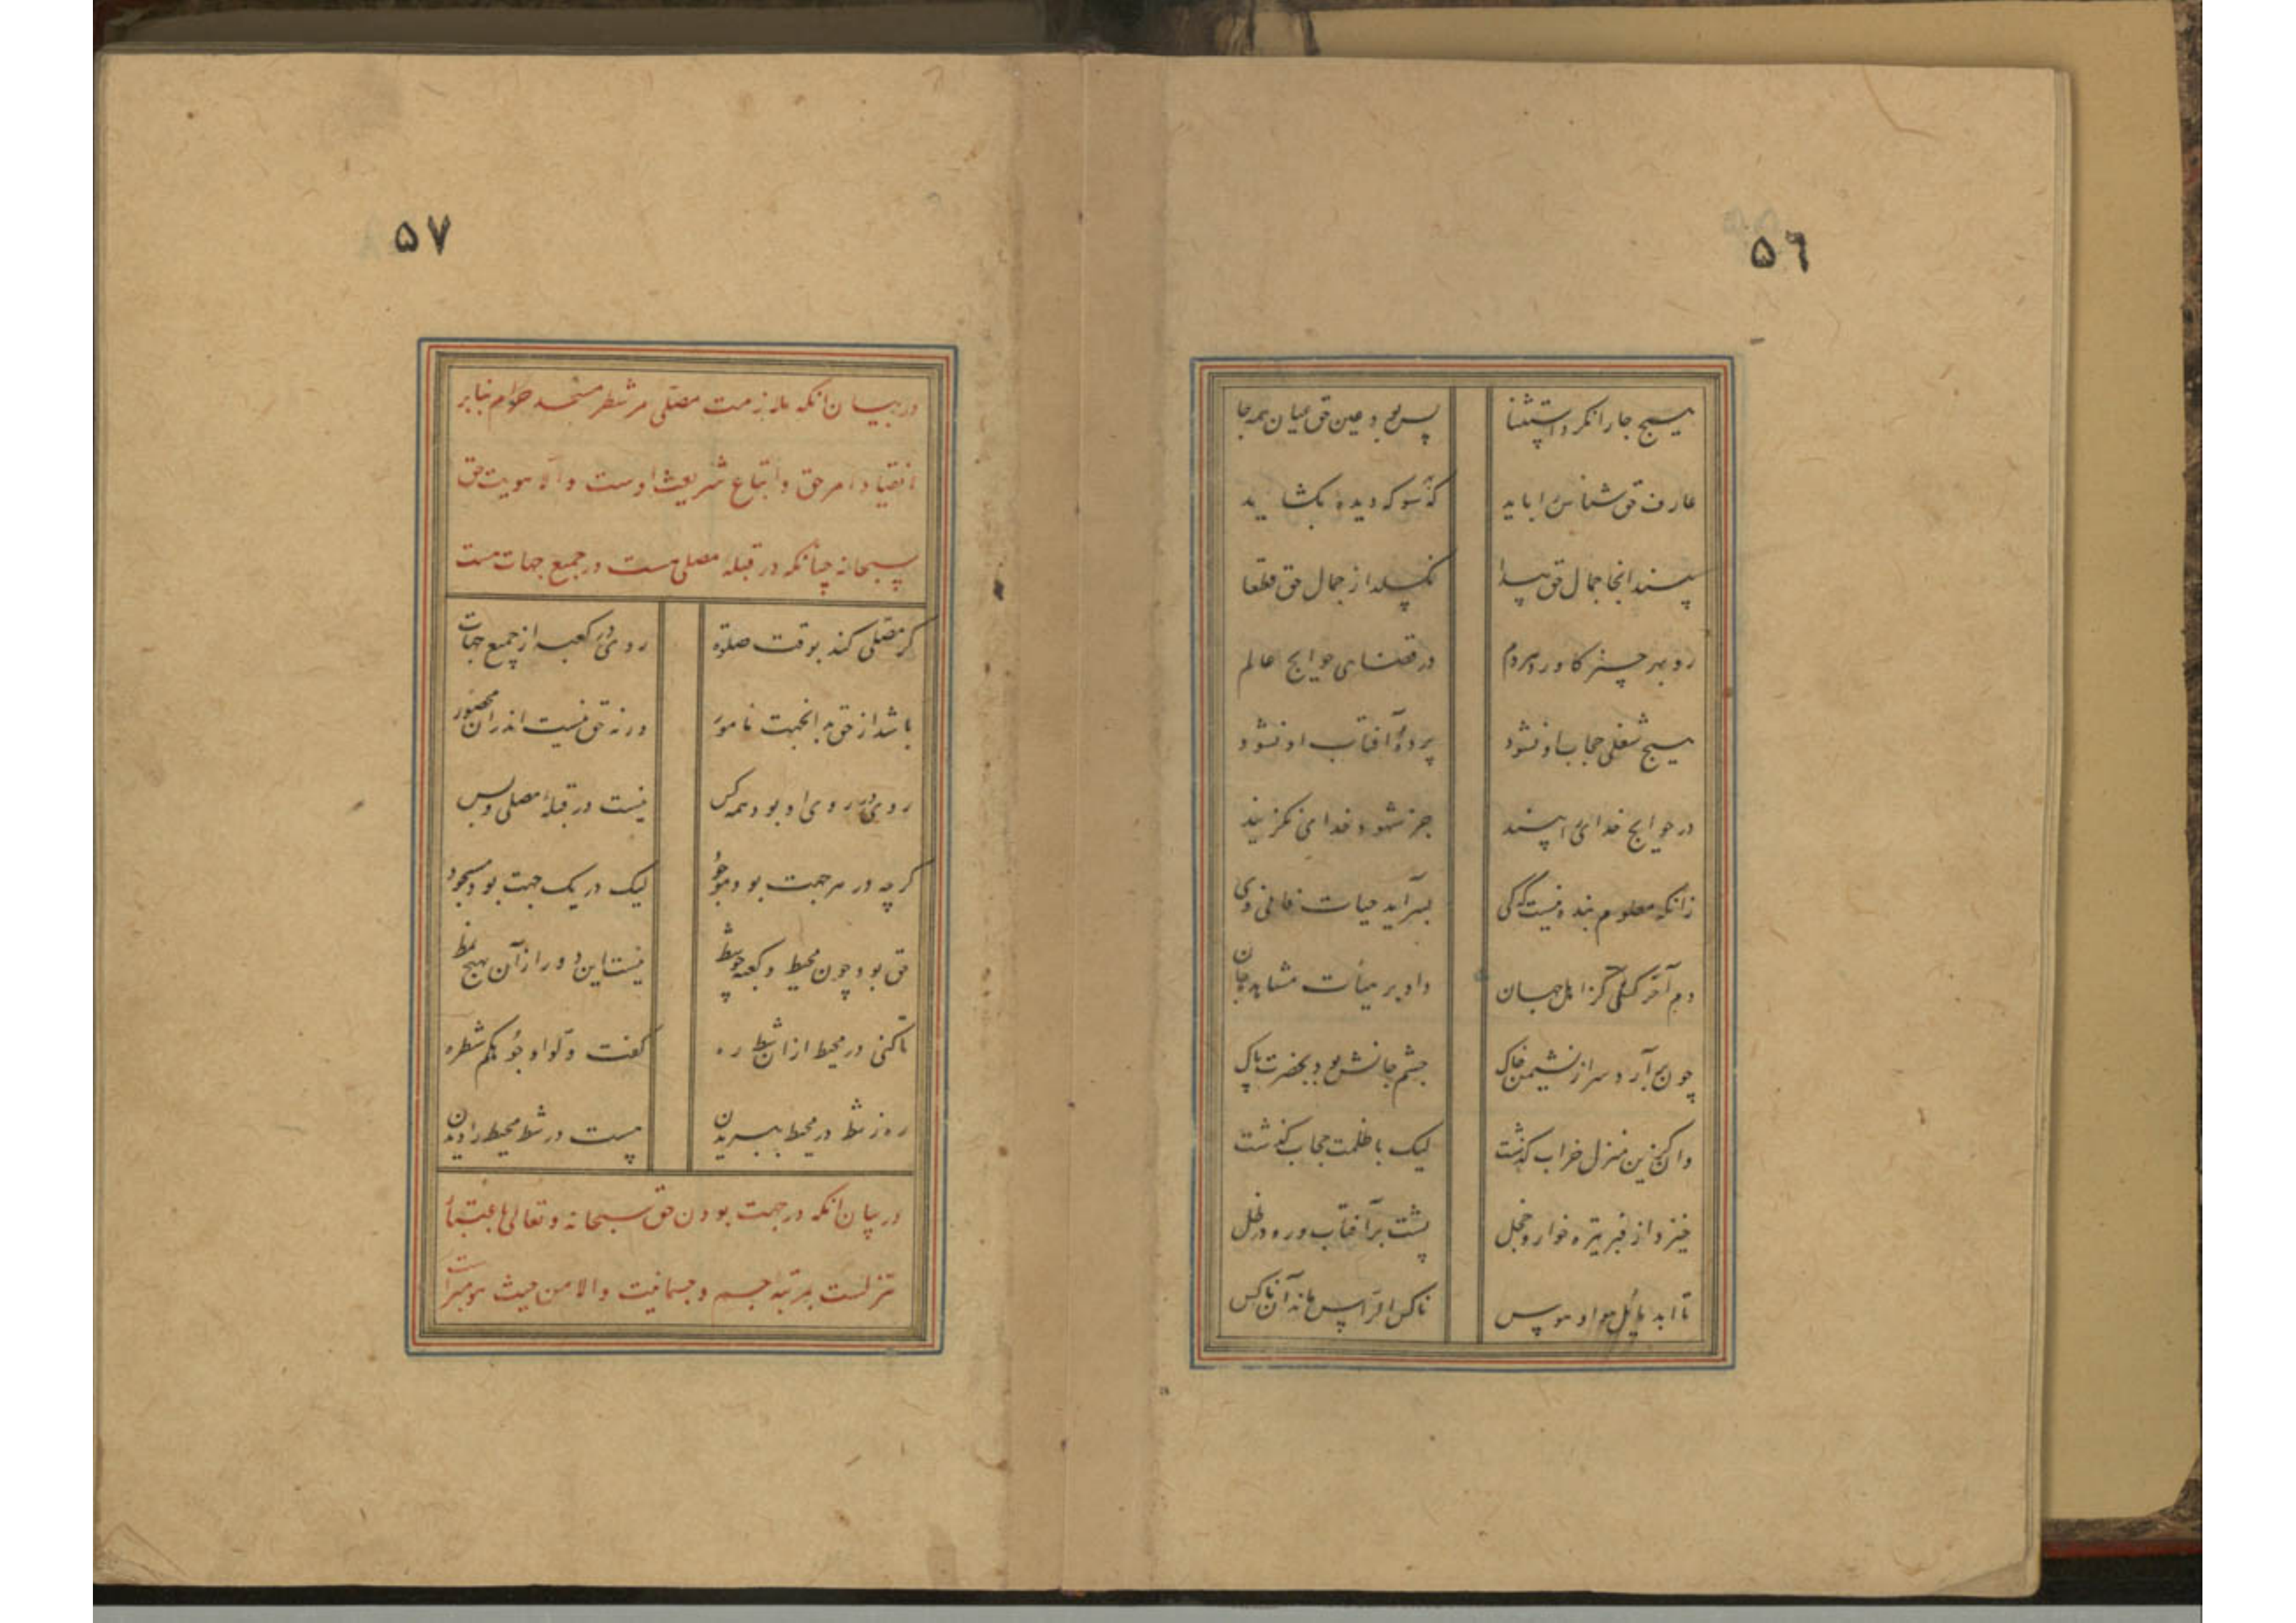 ٥٦
هیچ جا را نکرد استثنا پس بود عین حق میان همه جا
عارف حق شناس را باید که بهر سو که دیده بکشاید
بیند آنجا جمال حق پیدا نکسلد از جمال حق قطعا
رو بهر چیز کاورد هر دم در قضای حوایج عالم
هیچ شغلی حجاب او نشود پرده آفتاب او نشود
در حوایج خدای را بیند جز شهود خدای نکزیند
زانکه معلوم بنده نیست که کی بسر آید حیات فانی وی
دم آخر کسی کز اهل جهان داد بر هیأت مشاهد جان
چون بر آرد سر از نشیمن خاک چشم جانش بود بحضرت پاک
وان کزین منزل خراب کذشت لیک با ظلمت حجاب کذشت
خیزد از قبر تیره خوار و خجل پشت بر آفتاب و رو در ظل
تا ابد پای کل هوا و هوس ناکس الراس ماند آن ناکس
٥٧
در بیان آنکه ملازمت مصلی مر شطر مسجد حرام بنابر
انقیاد امر حق و اتباع شریعت اوست و الا هویت حق
سبحانه چنانکه در قبله مصلی هست در جمیع جهات هست
کر مصلی کند بوقت صلوة روی در کعبه از جمیع جهات
باشد از حق به آنجهت مامور ورنه حق نیست اندران محصور
روی در روی او بود همه کس نیست در قبله مصلی و بس
کرچه در هر جهت بود موجود لیک در یک جهت بود مسجود
حق بود چون محیط و کعبه چو شط نیست این دور از آن بهیچ نمط
تا کنی در محیط ازان شط ره کفت ولوا وجوهکم شطره
ره ز شط در محیط ببریدن هست در شط محیط را دیدن
در بیان آنکه در جهت بودن حق سبحانه و تعالی باعتبار
تنزلست بمرتبه جسم و جسمانیت والا من حیث هو مبراست